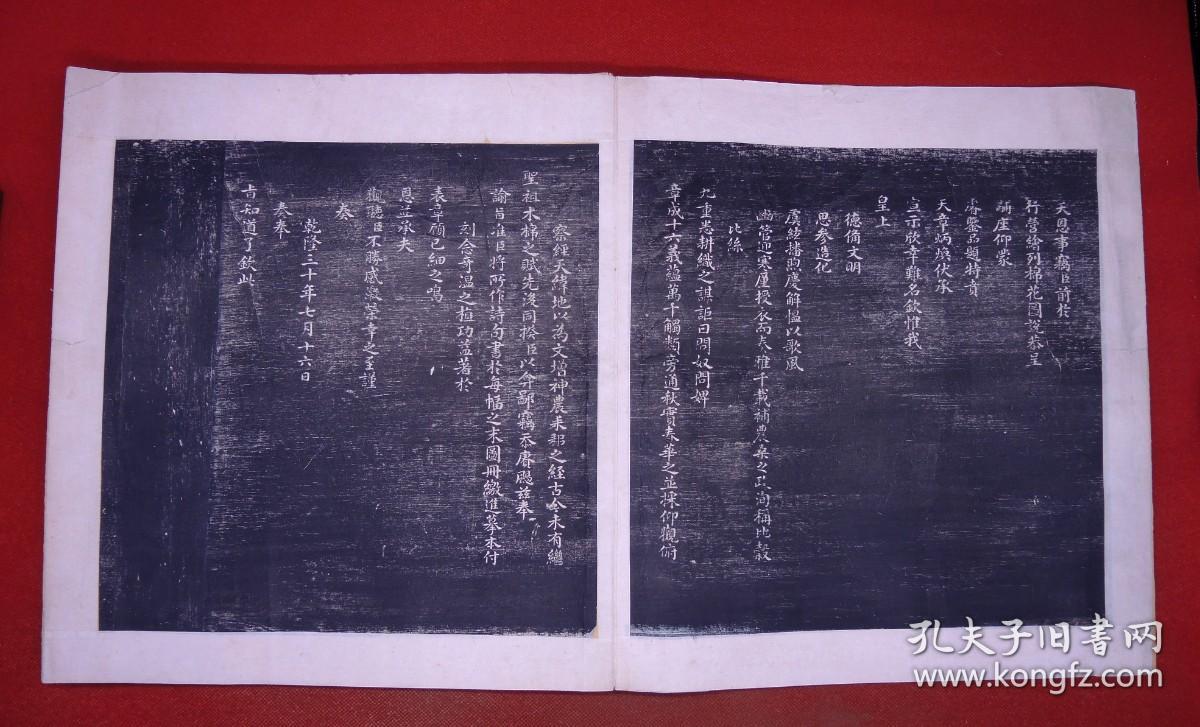 天恩事竊臣前於
行營繪列棉花圖說恭呈
黼座仰蒙
睿鑒品題特賁
天章炳煥伏承
宣示欣幸難名欽惟我
皇上
德備文明
思參造化
虞絃播煦慶解慍以歌風
豳管迎寒廑授衣而哀雅千載補農桑之政洵稱比穀
比絲
九重悉耕織之謀詎曰問奴問婢
章成十六義蘊萬千觸類旁通秋實春華之並採仰觀俯
察經天緯地以為文增神農耒耜之經古今未有繼
聖祖木棉之賦先後同揆臣以弇鄙竊忝賡颺茲奉
諭旨准臣將所作詩句書於每幅之末圖冊繳進摹本付
刻念奇溫之植功益著於
表章顧已細之鳴
恩並承夫
獨聽臣不勝感激榮幸之至謹
奏
乾隆三十年七月十六日
奏奉
旨知道了欽此
孔夫子旧书网
www.kongfz.com